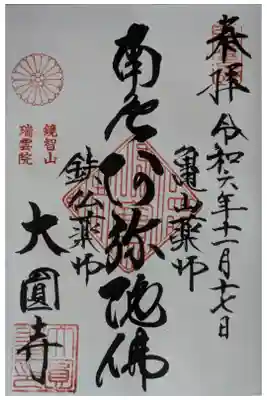 奉拝
令和六年十一月十七日
亀山薬師
南无阿弥陀佛
鉄仏薬師
鏡智山
瑞雲院
大圓寺